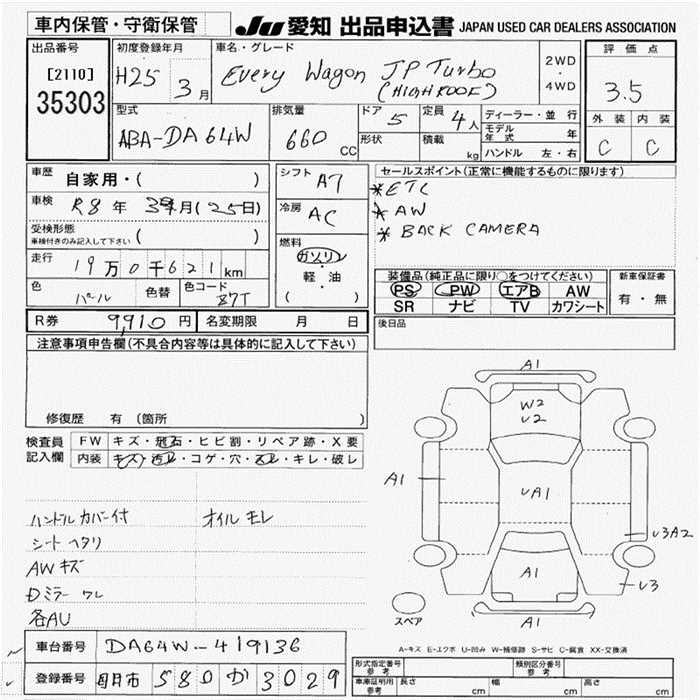 車内保管・守衛保管
JU 愛知 出品申込書 JAPAN USED CAR DEALERS ASSOCIATION
出品番号
[2110]
35303
初度登録年月
H25 3月
車名・グレード
Every Wagon JP Turbo
(HIGH ROOF)
2WD
・
4WD
評価点
3.5
外装 内装
C C
型式
ABA-DA64W
排気量
660 CC
ドア 5
形状
定員 4人
積載 kg
ディーラー・並行
モデル年式 年
ハンドル 左・右
車歴 自家用・( )
車検 R8年 3月(25日)
受検形態
車検付きのみ記入して下さい ( )
走行 19万0千621km
色 パール 色替 色コード Z7T
シフト A7
冷房 AC
燃料
ガソリン
・
軽・油
( )
セールスポイント(正常に機能するものに限ります)
*ETC
*AW
*BACK CAMERA
装備品(純正品に限り○をつけてください)
PS PW エアB AW
SR ナビ TV カワシート
新車保証書
有・無
R券 9,910円 名変期限 月 日
後日品
注意事項申告欄(不具合内容等は具体的に記入して下さい)
修復歴 有 (箇所 )
検査員
記入欄
FW キズ・飛石・ヒビ割・リペア跡・X要
内装 キズ・汚れ・コゲ・穴・スレ・キレ・破レ
ハンドルカバー付 オイルモレ
シートヘタリ
AWキズ
Dミラーワレ
各AU
A1
W2
U2
A1
UA1
U3A2
A1
U3
A1
スペア
A-キズ E-エクボ U-凹み W-補修跡 S-サビ C-腐食 XX-交換済
車台番号 DA64W-419136
登録番号 580 か 3029
形式指定番号
参考
類別区分番号
参考
車庫証明用
参考
長さ cm 幅 cm 高さ cm